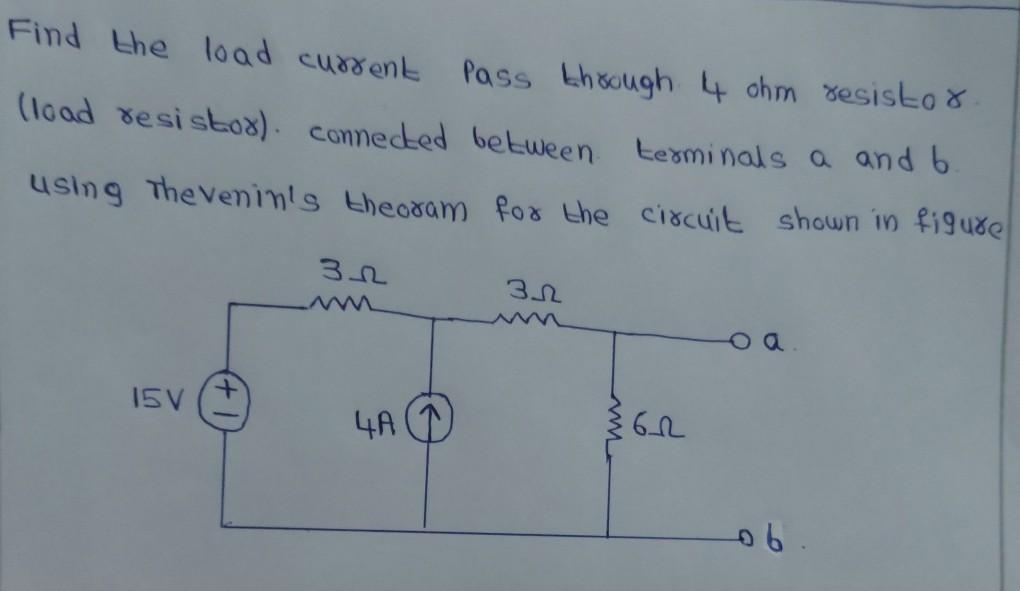 Find the load current Pass through 4 ohm resistor.
(load resistor). connected between terminals a and b.
using Thevenin's theoram for the circuit shown in figure
3Ω
3Ω
a.
15V
+
4A
6Ω
b.